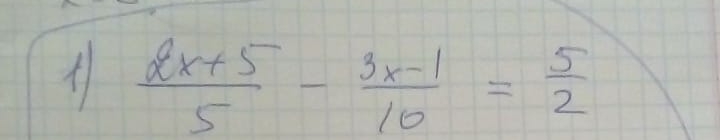 1) (2x+5)/5 - (3x-1)/10 = 5/2